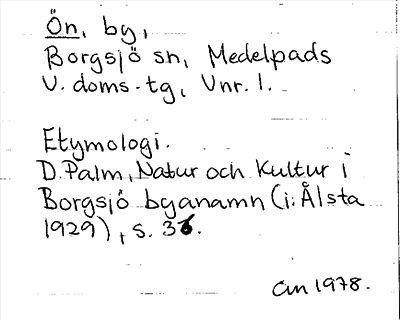 Ön, by,
Borgsjö sn, Medelpads
V. doms. tg, Vnr. 1.
Etymologi.
D. Palm, Natur och Kultur i
Borgsjö byanamn (i: Ålsta
1929), s. 36.
1978.